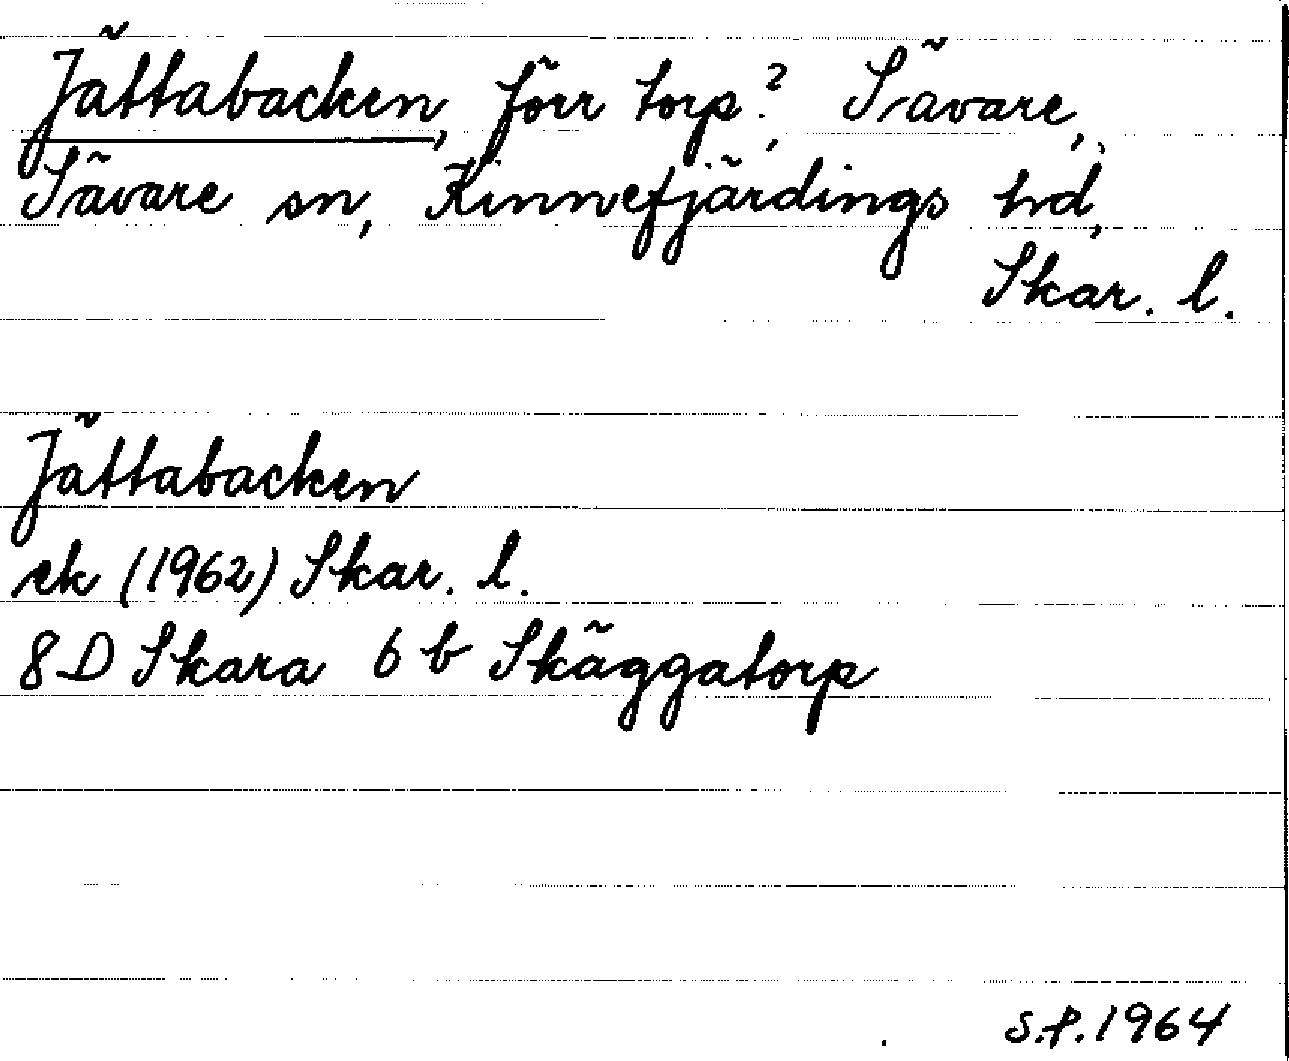 Jättabacken, förr torp?, Sävare,
Sävare sn, Kinnefjärdings hd,
Skar. l.
Jättabacken
ek (1962) Skar. l.
8D Skara 6b Skäggatorp
S.f. 1964